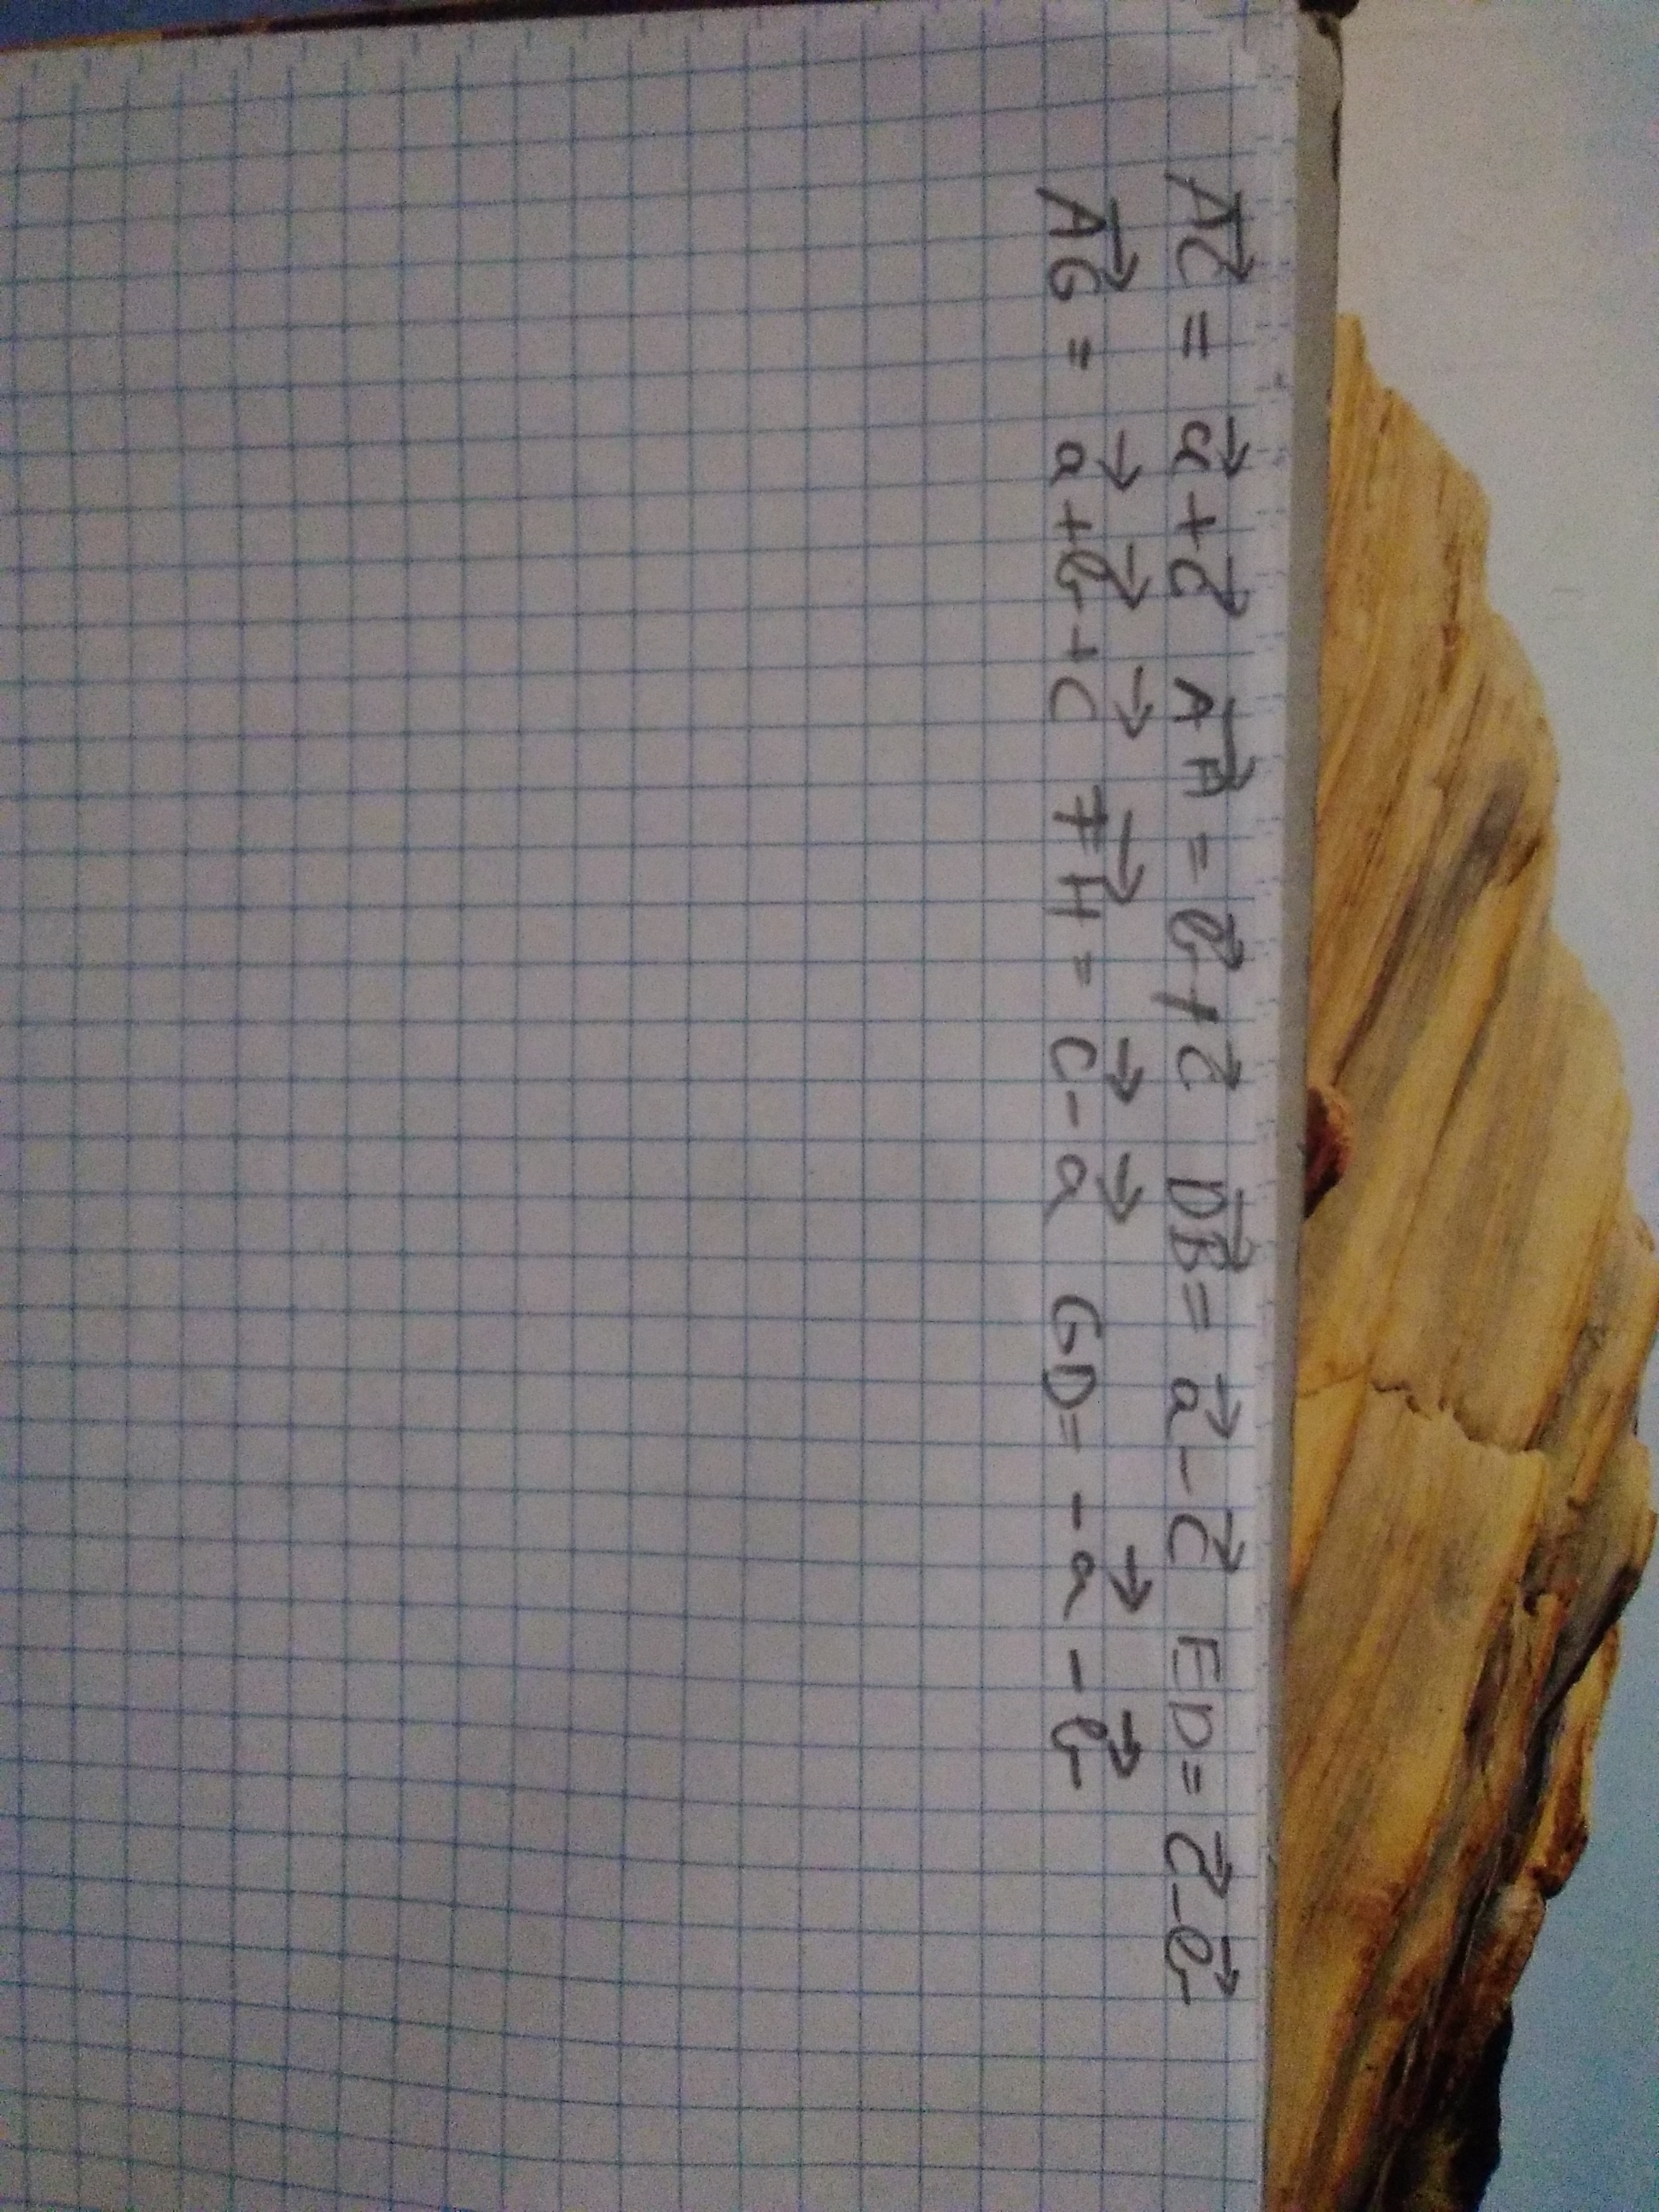 A⃗C⃗ = a⃗ + c⃗ A⃗H⃗ = b⃗ + c⃗ D⃗B⃗ = a⃗ - c⃗ ED = c⃗ - b⃗
A⃗G⃗ = a⃗ + b⃗ + c⃗ F⃗H⃗ = c⃗ - a⃗ GD = - a⃗ - b⃗